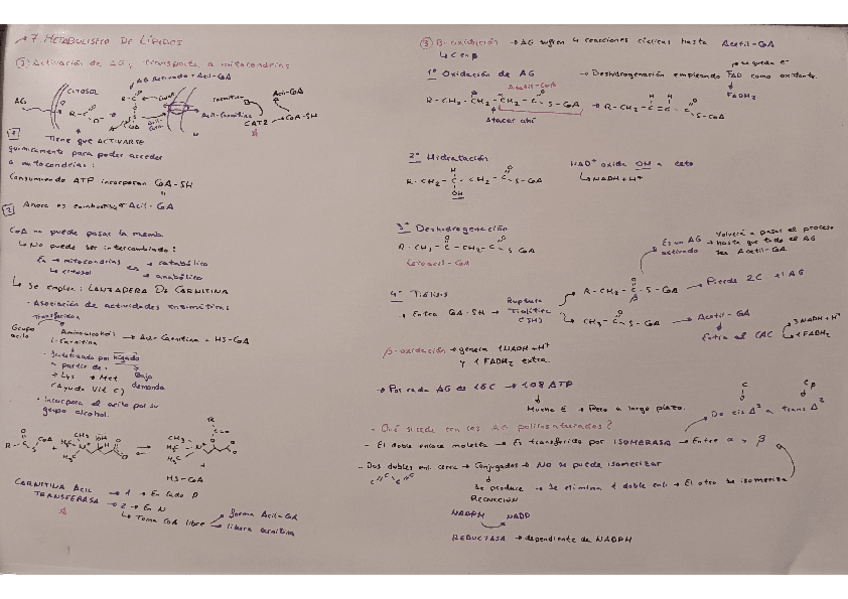 →7 METABOLISMO DE LÍPIDOS
① Activación de AG, transporte a mitocondrias
CITOSOL
AG Activado = Acil-CoA
AG
Acil-CoA
Acil-Carnitina
CAT2
CoA-SH
1
Tiene que ACTIVARSE
químicamente para poder acceder
a mitocondrias:
Consumiendo ATP incorporan CoA-SH
2
Ahora es Acil-CoA
CoA no puede pasar la memb.
↳ No puede ser intercambiado:
En → mitocondrias es → catabólico
→ citosol → anabólico
↳ Se emplea: LANZADERA DE CARNITINA
- Asociación de actividades enzimáticas
Transferasa
Grupo acilo
Aminoalcohol:
L-Carnitina
Acil-Carnitina + HS-CoA
· Sintetizado por hígado
a partir de:
→ Lys → Met
(Ayuda Vit C)
Bajo demanda
· Incorpora el acilo por su
grupo alcohol.
HS-CoA
CARNITINA ACIL TRANSFERASA
→ 1 → En lado P
→ 2 → En N
↳ Toma CoA libre
→ forma Acil-CoA
→ libera carnitina
③ β-oxidación → AG sufren 4 reacciones cíclicas hasta Acetil-CoA
↳ C en β
1º Oxidación de AG
Acetil-CoA
R-CH2-CH2-CH2-C-S-CoA
→ Deshidrogenación empleando FAD como oxidante.
FADH2
R-CH2-C=C-C
S-CoA
Atacar ahí
2º Hidratación
R-CH2-C-CH2-C-S-CoA
OH
NAD+ oxida OH a ceto
↳ NADH+H+
3º Deshidrogenación
R-CH2-C-CH2-C-S CoA
Cetoacil-CoA
4º Tiólisis
→ Entra CoA-SH →
Ruptura Tiolítica (SH)
R-CH2-C-S-CoA → Pierde 2C
Es un AG activado
→ Volverá a pasar el proceso
hasta que todo el AG
sea Acetil-CoA
CH3-C-S-CoA → Acetil-CoA
Entra al CAC
3 NADH+H+
1 FADH2
β-oxidación → genera 1 NADH+H+
y 1 FADH2 extra.
→ Por cada AG de 16C → 108 ATP
Mucha E → Pero a largo plazo.
- Qué sucede con los AG poliinsaturados?
- El doble enlace molesta → Es transferido por ISOMERASA → Entre α y β
De cis Δ3 a trans Δ2
- Dos dobles enl. cerca → Conjugados → NO se puede isomerizar
Se produce REDUCCIÓN
→ Se elimina 1 doble enl. → El otro se isomeriza
NADPH NADP
REDUCTASA → dependiente de NADPH